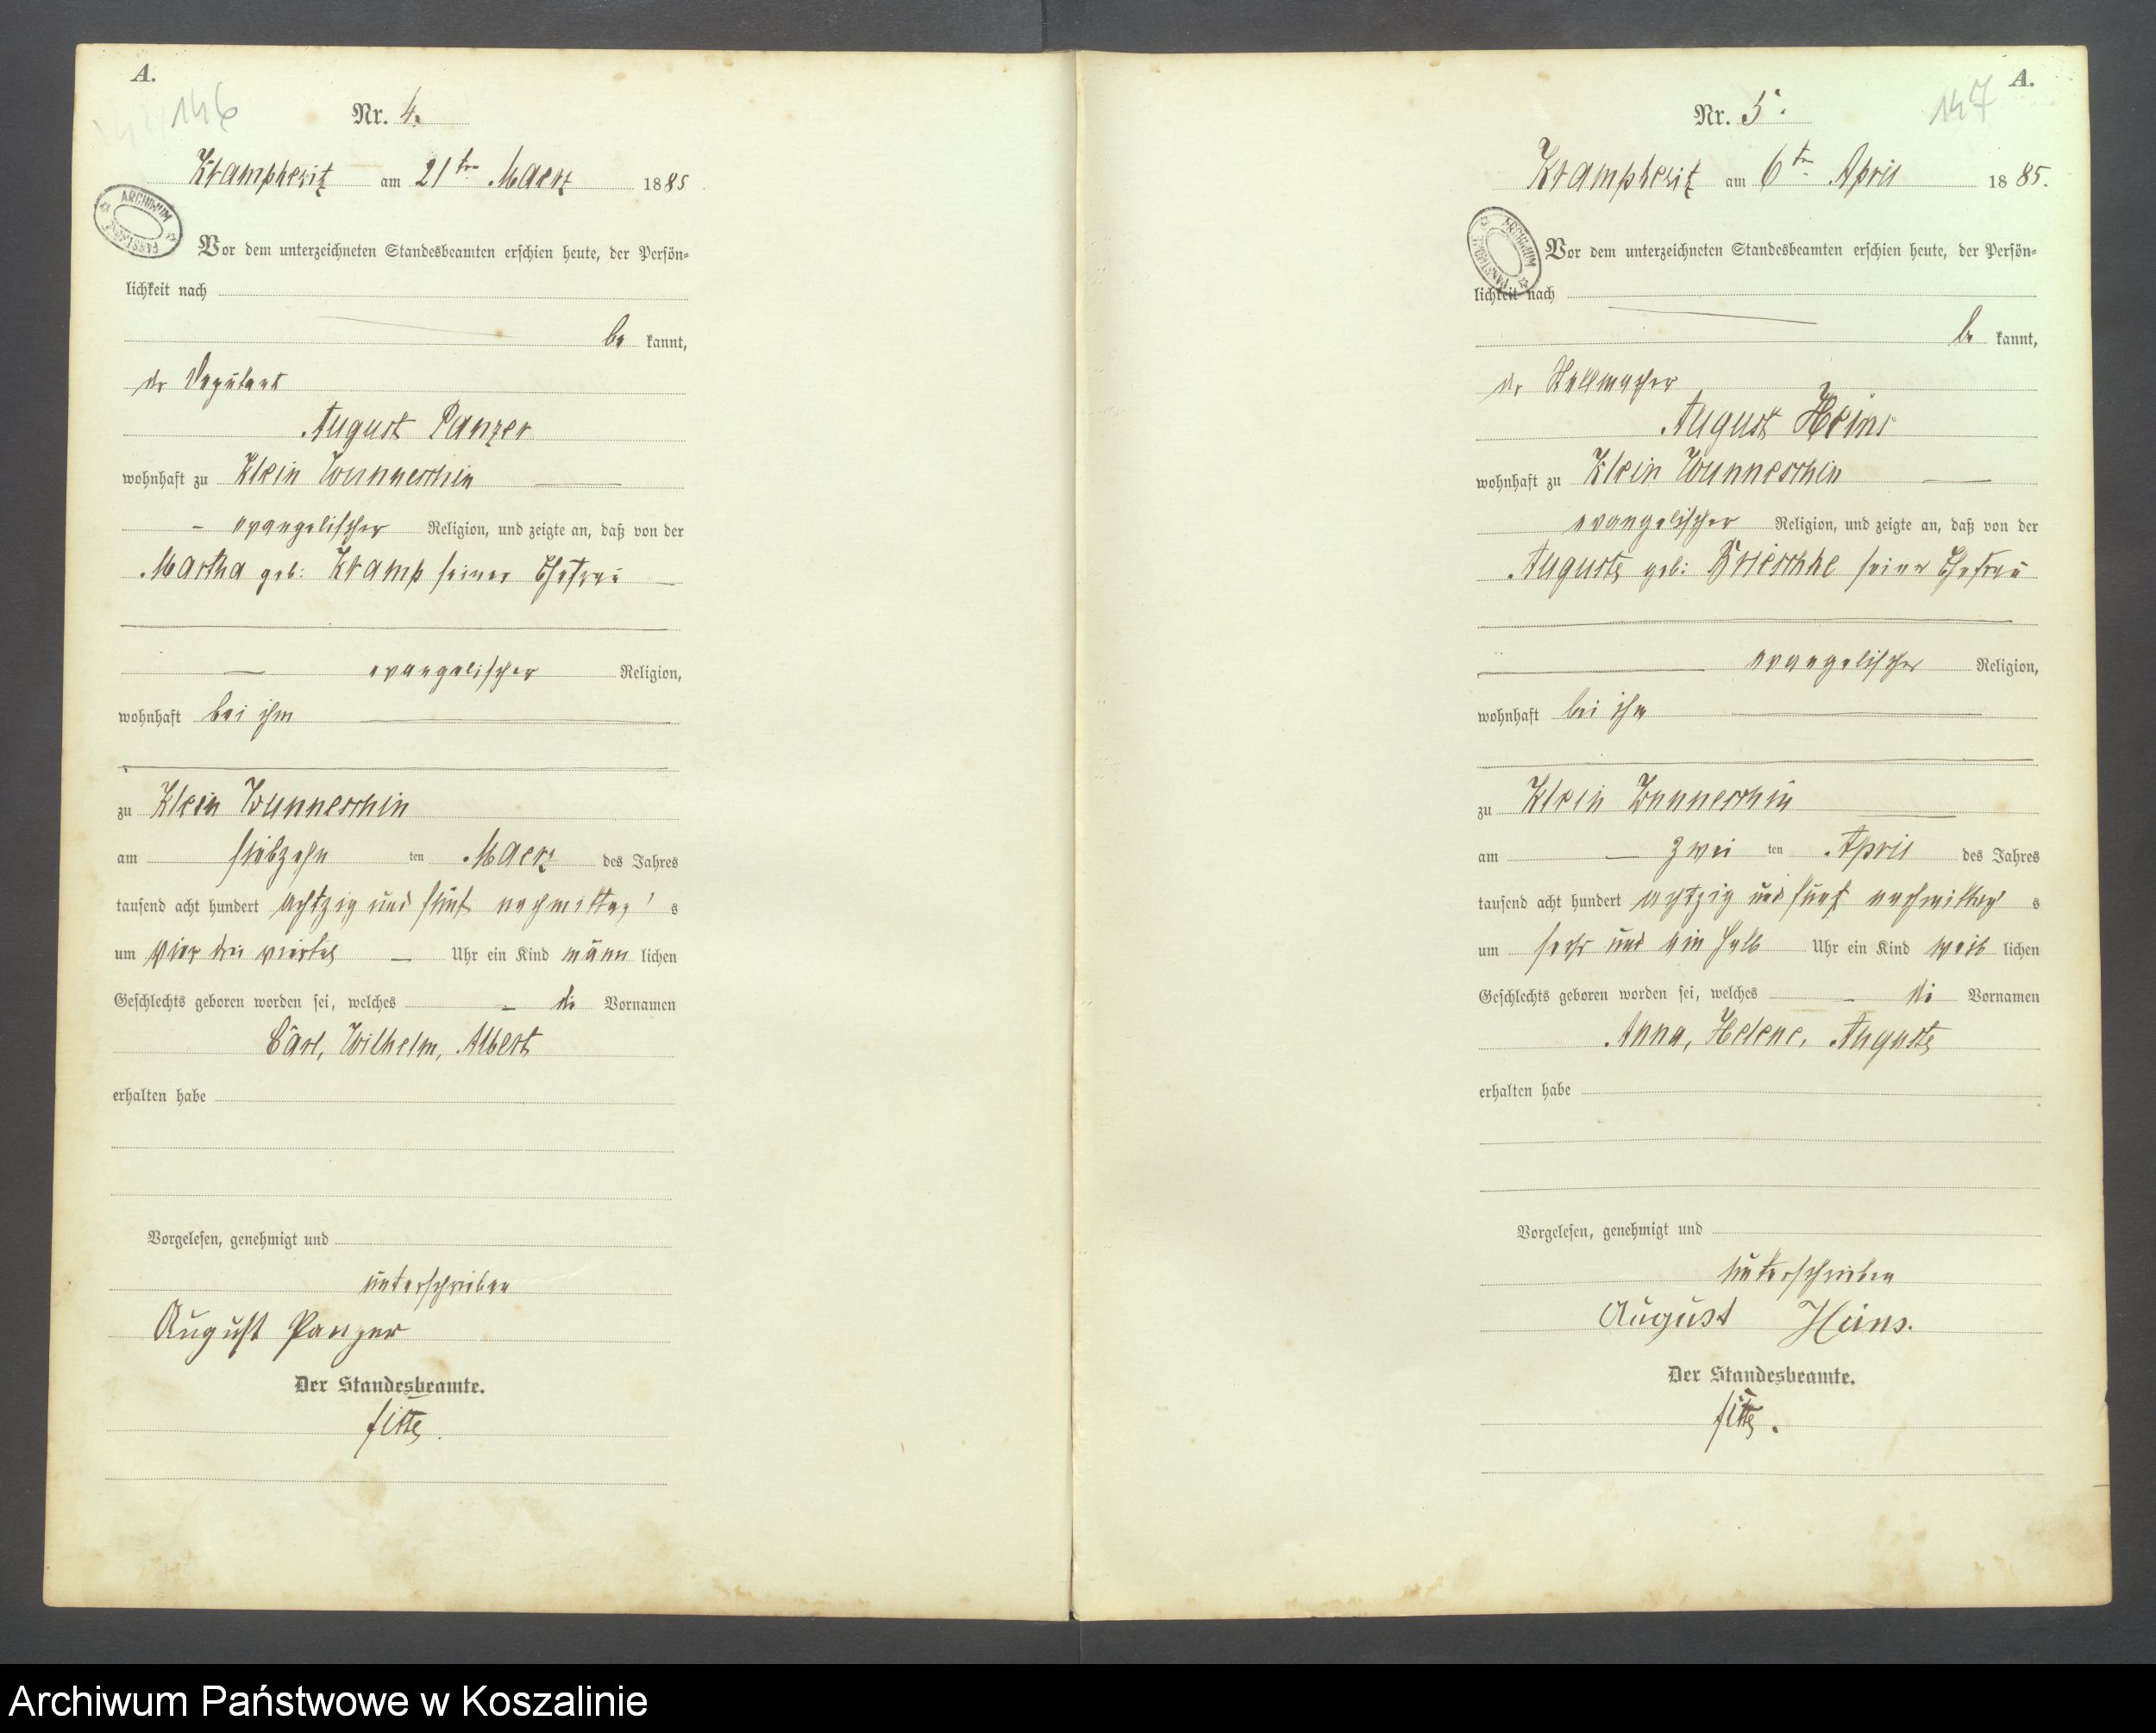 A.
146
Nr. 4.
Krampkewitz am 21ten Maerz 1885
ARCHIWUM PAŃSTWOWE
Vor dem unterzeichneten Standesbeamten erschien heute, der Persön=
lichkeit nach
be kannt,
der
August Panzer
wohnhaft zu Klein Wunneschin
evangelischer Religion, und zeigte an, daß von der
Martha geb: Kramp seiner Ehefrau
evangelischer Religion,
wohnhaft bei ihm
zu Klein Wunneschin
am siebzehn ten Maerz des Jahres
tausend acht hundert achtzig und fünf nachmittag s
um vier drei viertel Uhr ein Kind männ lichen
Geschlechts geboren worden sei, welches die Vornamen
Carl, Wilhelm, Albert
erhalten habe
Vorgelesen, genehmigt und
unterschrieben
August Panzer
Der Standesbeamte.
A.
147
Nr. 5.
Krampkewitz am 6ten April 1885.
ARCHIWUM PAŃSTWOWE
Vor dem unterzeichneten Standesbeamten erschien heute, der Persön=
lichkeit nach
be kannt,
der Stellmacher
August Heins
wohnhaft zu Klein Wunneschin
evangelischer Religion, und zeigte an, daß von der
Auguste geb: seiner Ehefrau
evangelischer Religion,
wohnhaft bei ihm
zu Klein Wunneschin
am zwei ten April des Jahres
tausend acht hundert achtzig und fünf nachmittag s
um sechs und ein halb Uhr ein Kind weib lichen
Geschlechts geboren worden sei, welches die Vornamen
Anna, Helene, Auguste
erhalten habe
Vorgelesen, genehmigt und
unterschrieben
August Heins.
Der Standesbeamte.
Archiwum Państwowe w Koszalinie